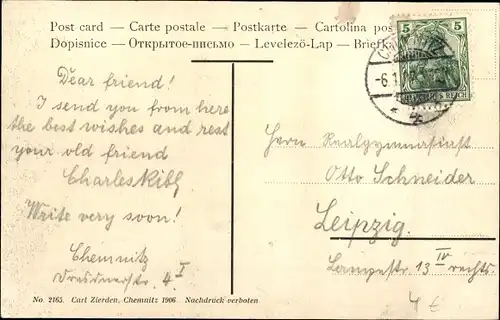 Post card — Carte postale — Postkarte — Cartolina pos
Dopisnice — Открытое-письмо — Levelező-Lap — Briefka
5 5
CHEMNITZ
-6.1.
DEUTSCHES REICH
Dear friend!
I send you from here
the best wishes and rest
your old friend
Charles
Write very soon!
Chemnitz
Dresdnerstr. 4 I
Herrn Realgymnasiast
Otto Schneider
Leipzig.
13 IV rechts
4 €
No. 2165. Carl Zierden, Chemnitz 1906 Nachdruck verboten